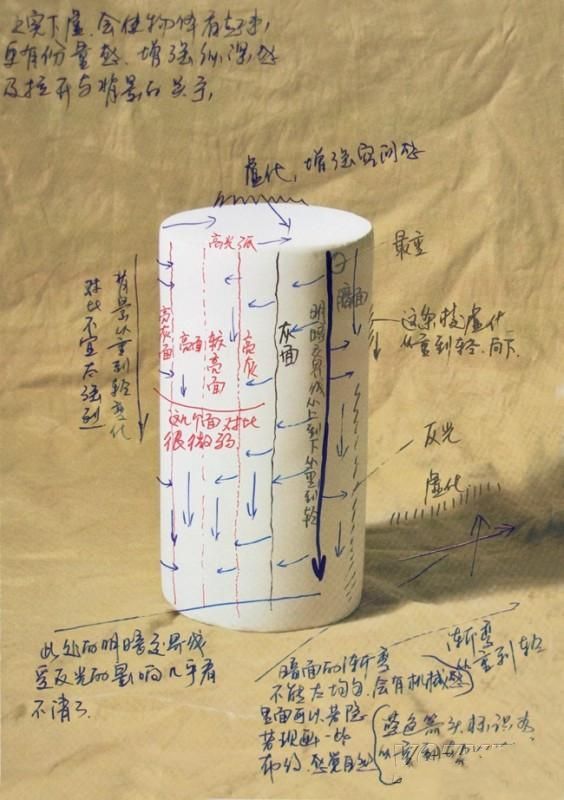 上实下虚、会使物体有起来,
更有份量感、增强纵深感
及拉开与背景的关系,
虚化,增强空间感
高光弧
最重
背景从重到轻变化
对比不宜太强烈
亮灰面
亮面
较亮面
亮灰
灰面
明暗交界线从上到下从重到轻
暗面
这条线虚化
从重到轻、向下
这几个面对比
很微弱
反光
虚化
渐变
从重到轻
此处的明暗交界线
受反光的影响几乎看
不清了
暗面的渐变
不能太均匀、会有机械感
里面可以若隐
若现画一些
布纹、感觉自然
蓝色箭头标识为
从重到轻